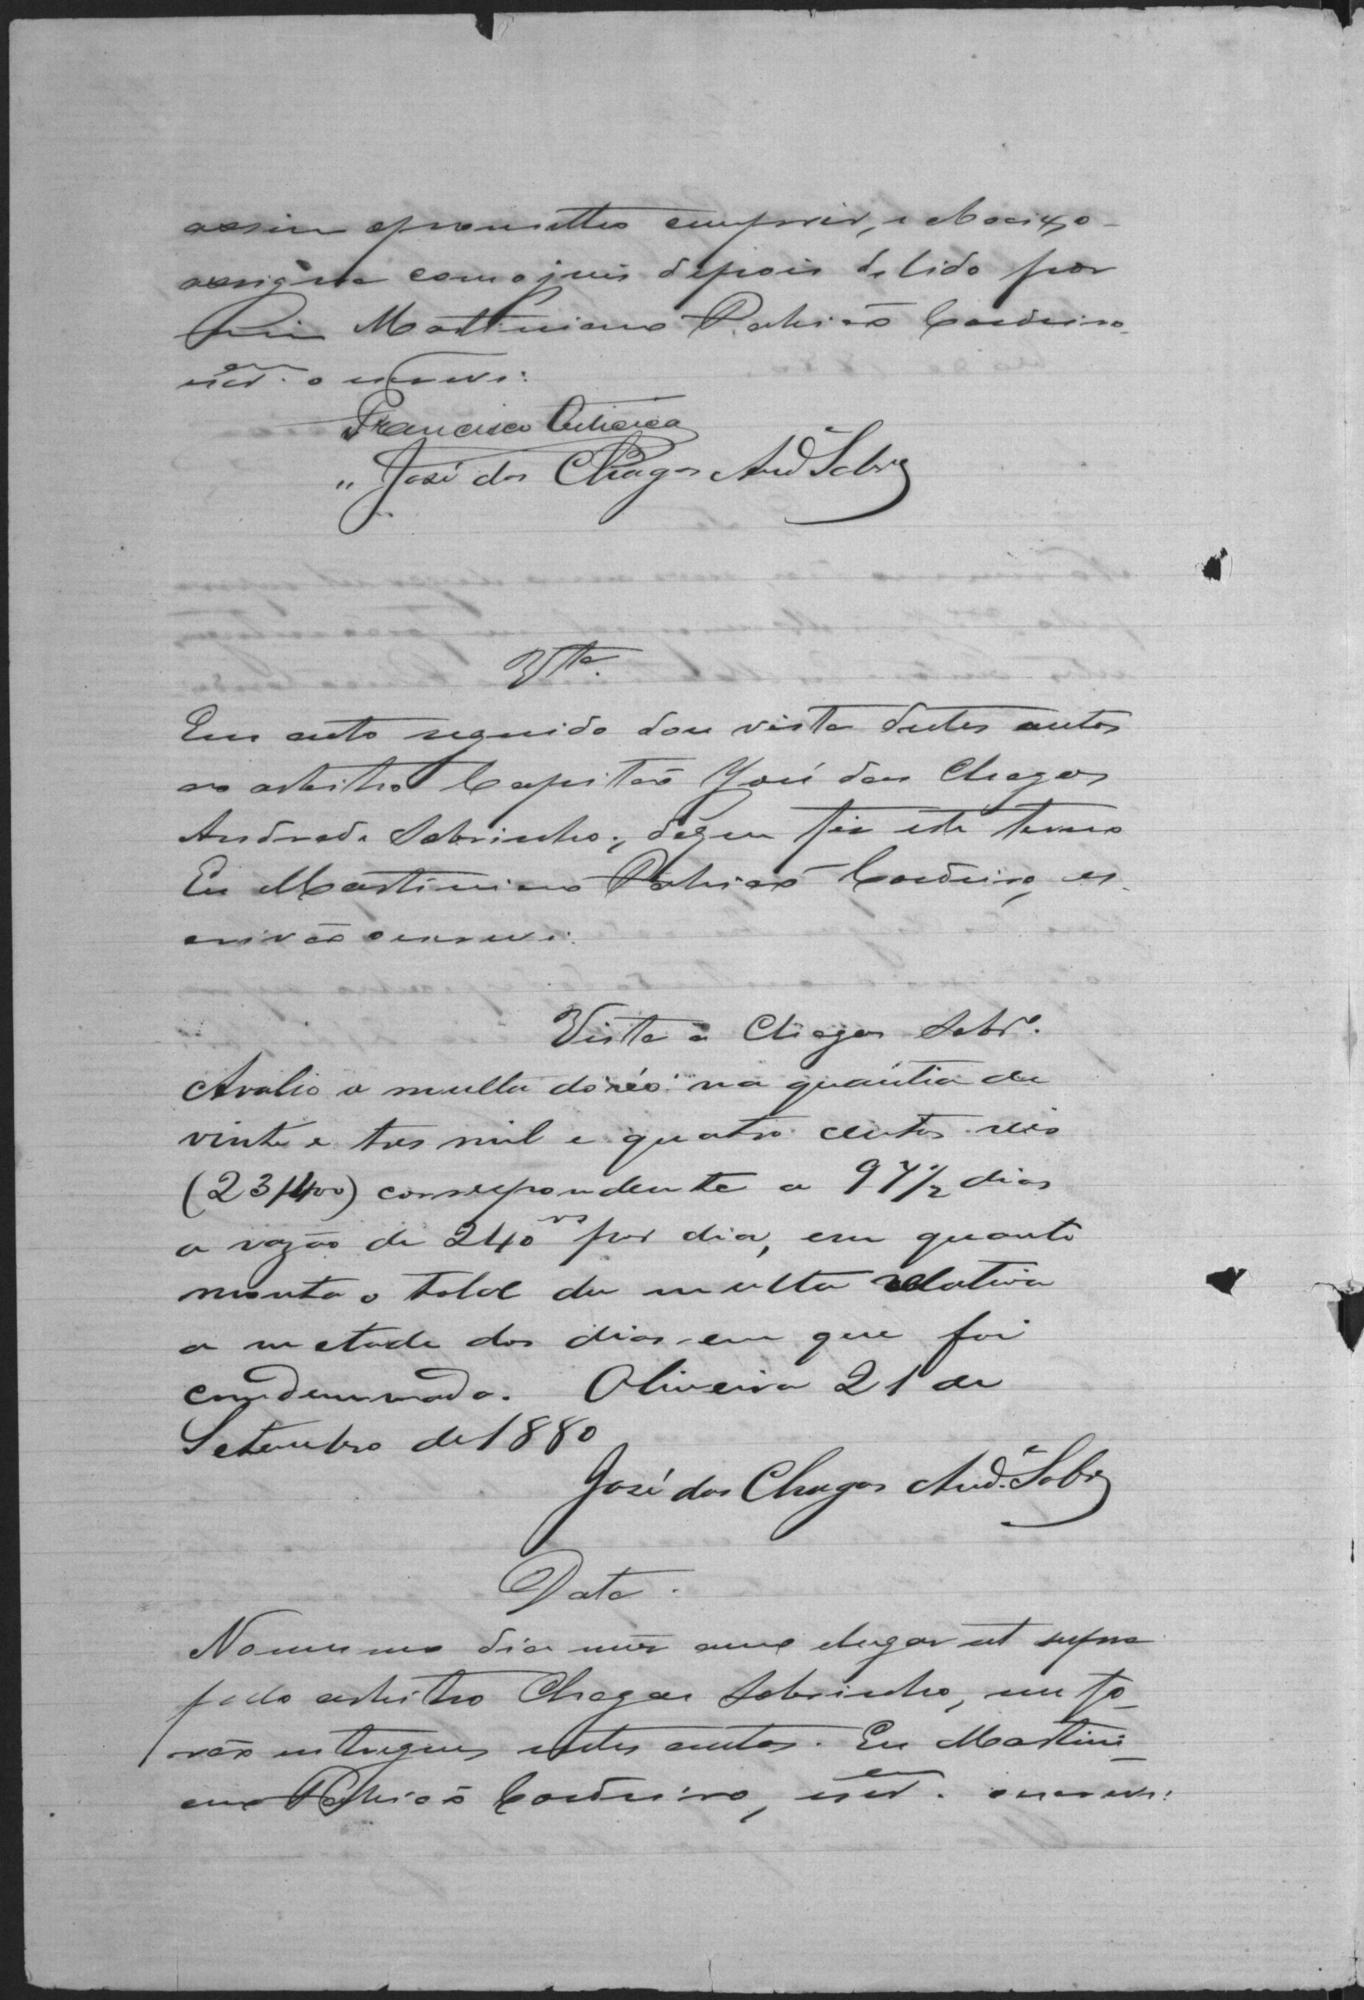 assim o prometteo cumprir, e abaixo
assigna com o juis depois de lido por
mim Martiniano Patricio Cordeiro
escr.am o escrevi:
Francisco
José das Chagas And.e Sobrº
Vta.
Em acto seguido dou vista destes autos
ao arbitro Capitão José das Chagas
Andrade Sobrinho; de que fiz este termo
Eu Martiniano Patricio Cordeiro, es-
crivão o escrevi:
Vista a Chagas Sobrº.
Avalio a multa do réo na quantia de
vinte e tres mil e quatro centos reis
(23$400) correspondente a 97½ dias
a razão de 240rs por dia, em quanto
monta o total da multa relativa
a metade dos dias em que foi
condemnado. Oliveira 21 de
Setembro de 1880
José das Chagas And.e Sobrº
Data.
No mesmo dia mês anno e lugar ut supra
pelo arbitro Chagas Sobrinho, me fo-
rão entregues estes autos. Eu Martini-
ano Patricio Cordeiro, escr.am o escrevi: